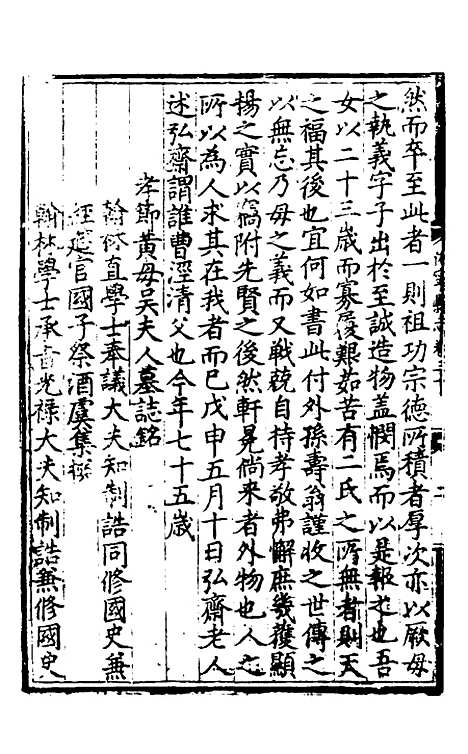 然而卒至此者一則祖功宗德所積者厚次亦以厥母
之執義字子出於至誠造物蓋憫焉而以是報之也吾
女以二十三歲而寡後艱茹苦有二氏之所無者則天
之福其後也宜何如書此付外孫壽翁謹收之世傳之
以無忘乃母之義而又戰兢自持孝敬弗懈庶幾獲顯
揚之實以竊附先賢之後然軒冕倘來者外物也人之
所以為人求其在我者而已戊申五月十日弘齋老人
述弘齋謂誰曹涇清父也今年七十五歲
孝節黃母吳夫人墓誌銘
翰林直學士奉議大夫知制誥同修國史兼
經筵官國子祭酒虞集撰
翰林學士承旨光祿大夫知制誥兼修國史